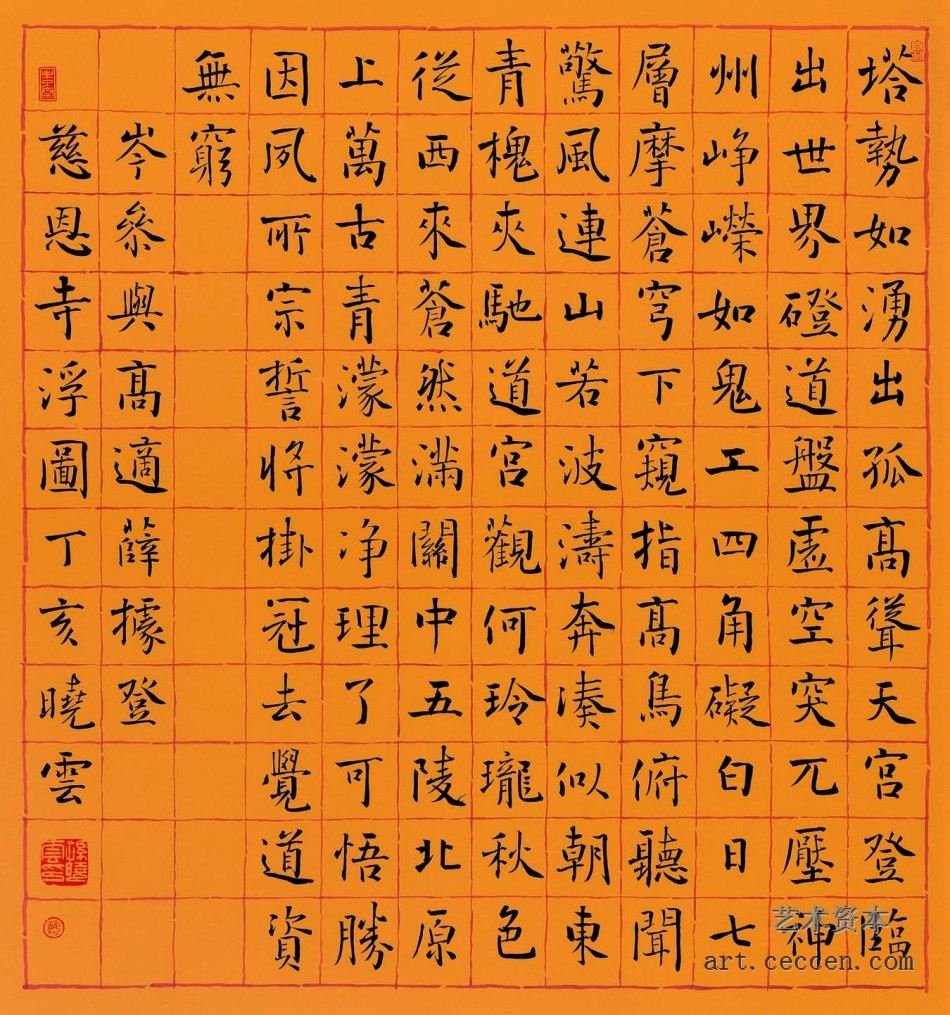 塔勢如湧出孤高聳天宮登臨
出世界磴道盤虛空突兀壓神
州崢嶸如鬼工四角礙白日七
層摩蒼穹下窺指高鳥俯聽聞
驚風連山若波濤奔湊似朝東
青槐夾馳道宮觀何玲瓏秋色
從西來蒼然滿關中五陵北原
上萬古青濛濛淨理了可悟勝
因夙所宗誓將掛冠去覺道資
無窮
岑參與高適薛據登
慈恩寺浮圖丁亥曉雲
孫曉雲印
艺术资本
art.ceccen.com